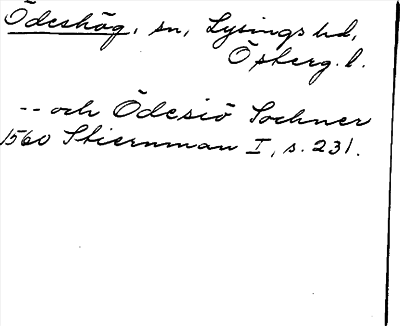 Ödeshög, sn, Lysings hd,
Österg. l.
-- och Ödesiö Sochner
1560 Stiernman I, s. 231.